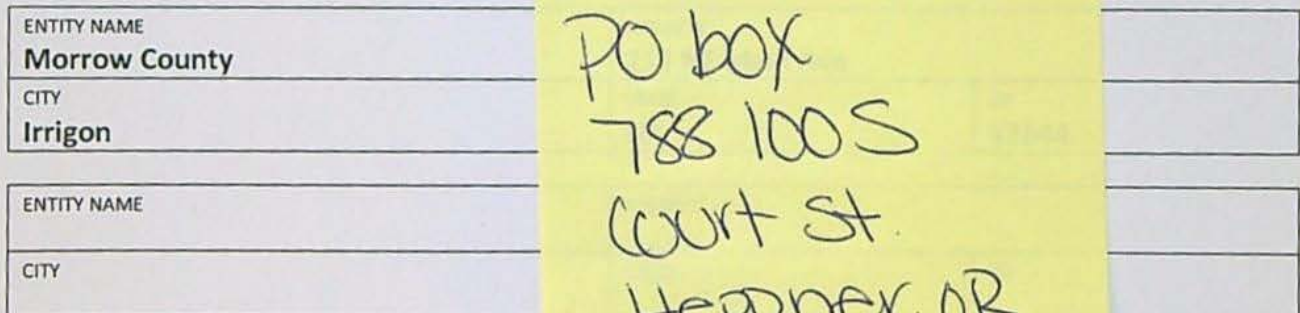 ENTITY NAME
Morrow County
CITY
Irrigon
ENTITY NAME
CITY
PO box
788 100 S
Court St.
Heppner, OR